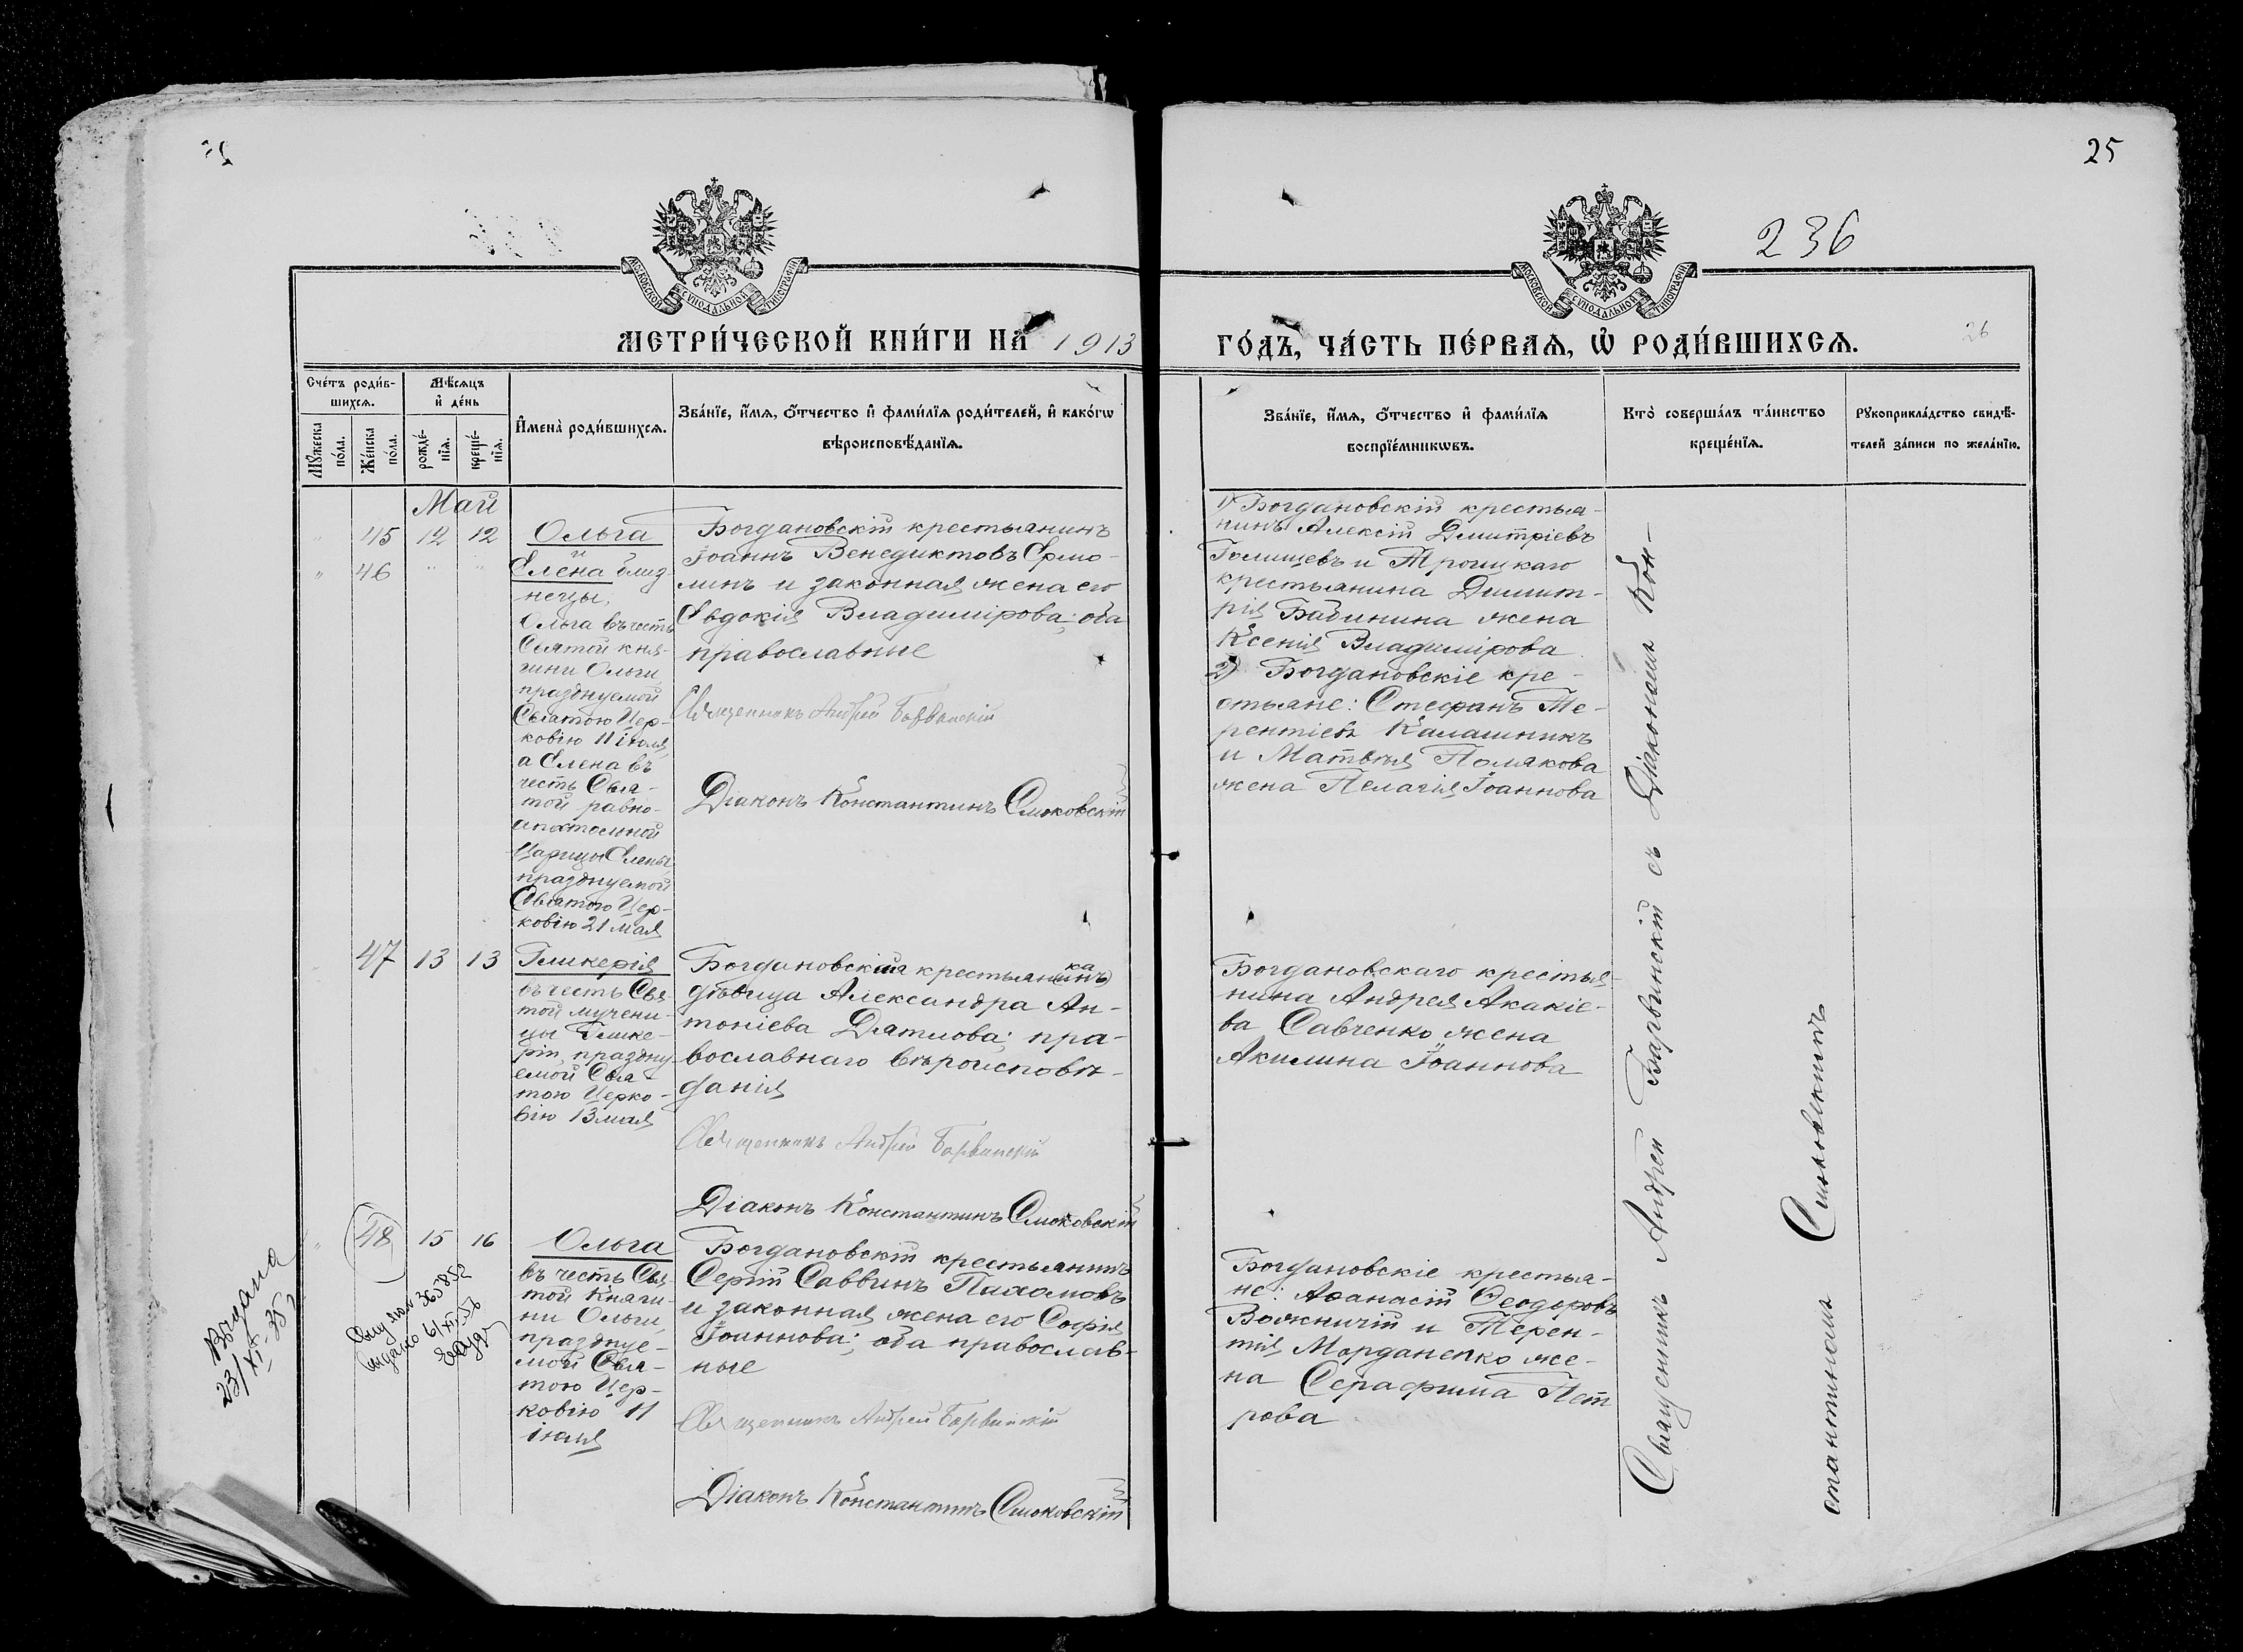 25
236
26
МОСКОВСКОЙ СѴНОДАЛЬНОЙ ТИПОГРАФІИ
МОСКОВСКОЙ СѴНОДАЛЬНОЙ ТИПОГРАФІИ
МЕТРИ́ЧЕСКОЙ КНИ́ГИ НА 1913
ГО́ДЪ, ЧА́СТЬ ПЕ́РВАѦ, Ѡ РОДИ́ВШИХСѦ.
Сче́тъ роди́в-
шихсѧ.
Мꙋ́жеска
по́ла.
Же́нска
по́ла.
Мѣ́сѧцъ
и҆ де́нь
рожде́-
нїѧ.
креще́-
нїѧ.
И҆мена̀ роди́вшихсѧ.
Зва́нїе, и҆́мѧ, ѻ҆́тчество и҆ фами́лїѧ роди́телей, и҆ како́гѡ
вѣроисповѣ́данїѧ.
Зва́нїе, и҆́мѧ, ѻ҆́тчество и҆ фами́лїѧ
воспрїе́мникѡвъ.
Кто̀ соверша́лъ та́инство
креще́нїѧ.
Рꙋкоприкла́дство свидѣ́-
телей за́писи по жела́нїю.
Май
" 45 12 12
" 46 " "
Ольга
и
Елена близ-
нецы,
Ольга въ честь
Святой кня-
гини Ольги,
празднуемой
Святою Цер-
ковію 11 іюля,
а Елена въ
честь Свя-
той равно-
апостольной
Царицы Елены,
празднуемой
Святою Цер-
ковію 21 мая
Богдановскій крестьянинъ
Іоаннъ Венедиктовъ Ермо-
линъ и законная жена его
Евдокія Владимірова; оба
православные
Священникъ Андрей Барвинскій
Діаконъ Константинъ Смоковскій
1) Богдановскій крестья-
нинъ Алексій Димитріевъ
Голищевъ и Троицкаго
крестьянина Димит-
рія Бабинина жена
Ксенія Владимірова
2) Богдановскіе кре-
стьяне: Стефанъ Те-
рентіевъ Калашникъ
и Матвѣя Полякова
жена Пелагія Іоаннова
47 13 13
Гликерія
въ честь Свя-
той мучени-
цы Глике-
ріи, праздну-
емой Свя-
тою Церко-
вію 13 мая
Богдановская крестьянка
дѣвица Александра Ан-
тоніева Дятлова; пра-
вославнаго вѣроисповѣ-
данія
Священникъ Андрей Барвинскій
Діаконъ Константинъ Смоковскій
Богдановскаго крестья-
нина Андрея Акакіе-
ва Савченко жена
Акилина Іоаннова
" 48 15 16
Ольга
въ честь Свя-
той Княги-
ни Ольги,
празднуе-
мой Свя-
тою Цер-
ковію 11
іюля
Богдановскій крестьянинъ
Сергій Саввинъ Пахомовъ
и законная жена его Софія
Іоаннова; оба православ-
ные
Священникъ Андрей Барвинскій
Діаконъ Константинъ Смоковскій
Богдановскіе крестья-
не: Аѳанасій Ѳеодоровъ
Волжничій и Терен-
тія Морданенко же-
на Серафима Пет
рова
Священникъ Андрей Барвинскій съ Діакономъ Кон-
стантиномъ Смоковскимъ
Выдана
23/XII-35
363852
выдано 6/XII 53